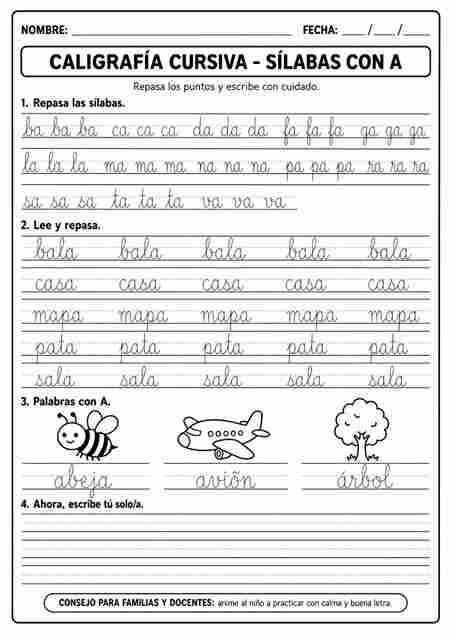 NOMBRE: ____________________ FECHA: ____/____/____
CALIGRAFÍA CURSIVA - SÍLABAS CON A
Repasa los puntos y escribe con cuidado.
1. Repasa las sílabas.
ba ba ba ca ca ca da da da fa fa fa ga ga ga
la la la ma ma ma na na na pa pa pa ra ra ra
sa sa sa ta ta ta va va va
2. Lee y repasa.
bala bala bala bala bala
casa casa casa casa casa
mapa mapa mapa mapa mapa
pata pata pata pata pata
sala sala sala sala sala
3. Palabras con A.
abeja aviõn árbol
4. Ahora, escribe tú solo/a.
CONSEJO PARA FAMILIAS Y DOCENTES: anime al niño a practicar con calma y buena letra.